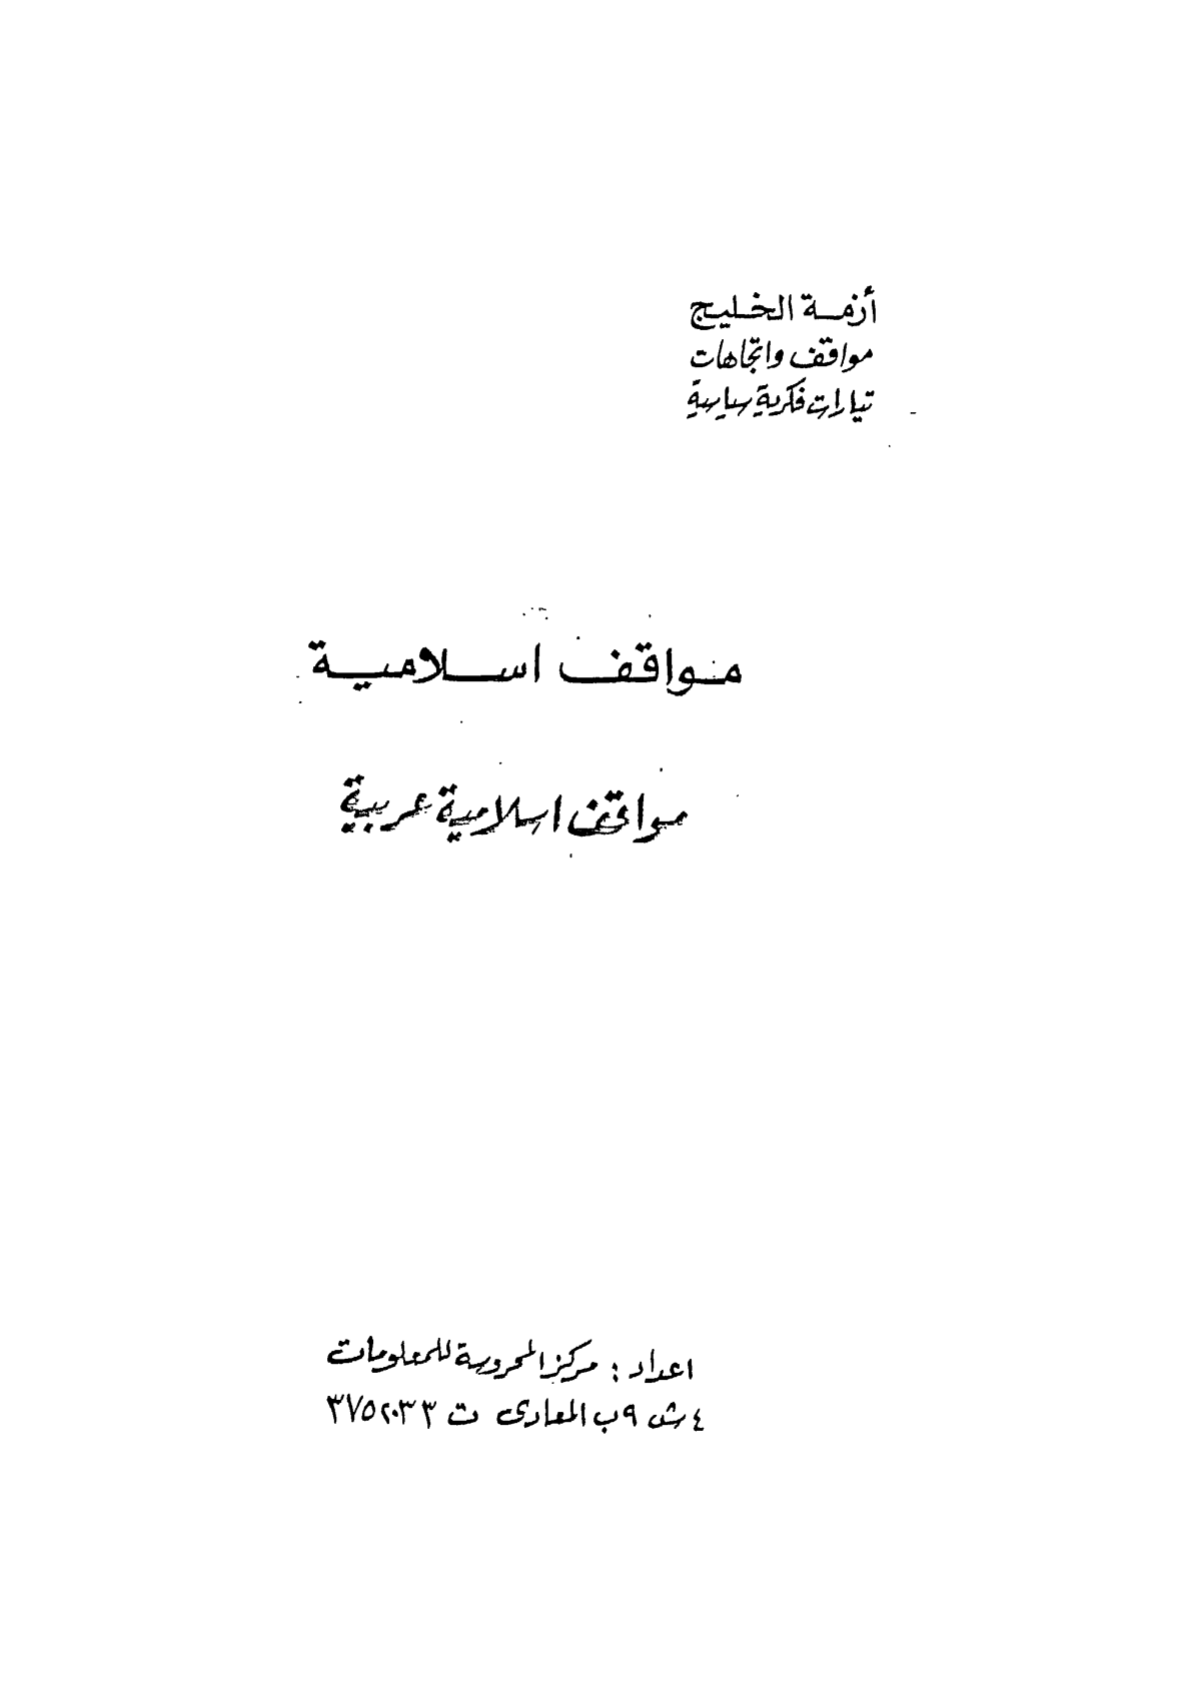 أزمة الخليج
مواقف واتجاهات
تيارات فكرية سياسية
مواقف اسلامية
مواقف اسلامية عربية
اعداد : مركز المحروسة للمعلومات
٤ ش ٩ب المعادى ت ٣٧٥٢٠٣٣